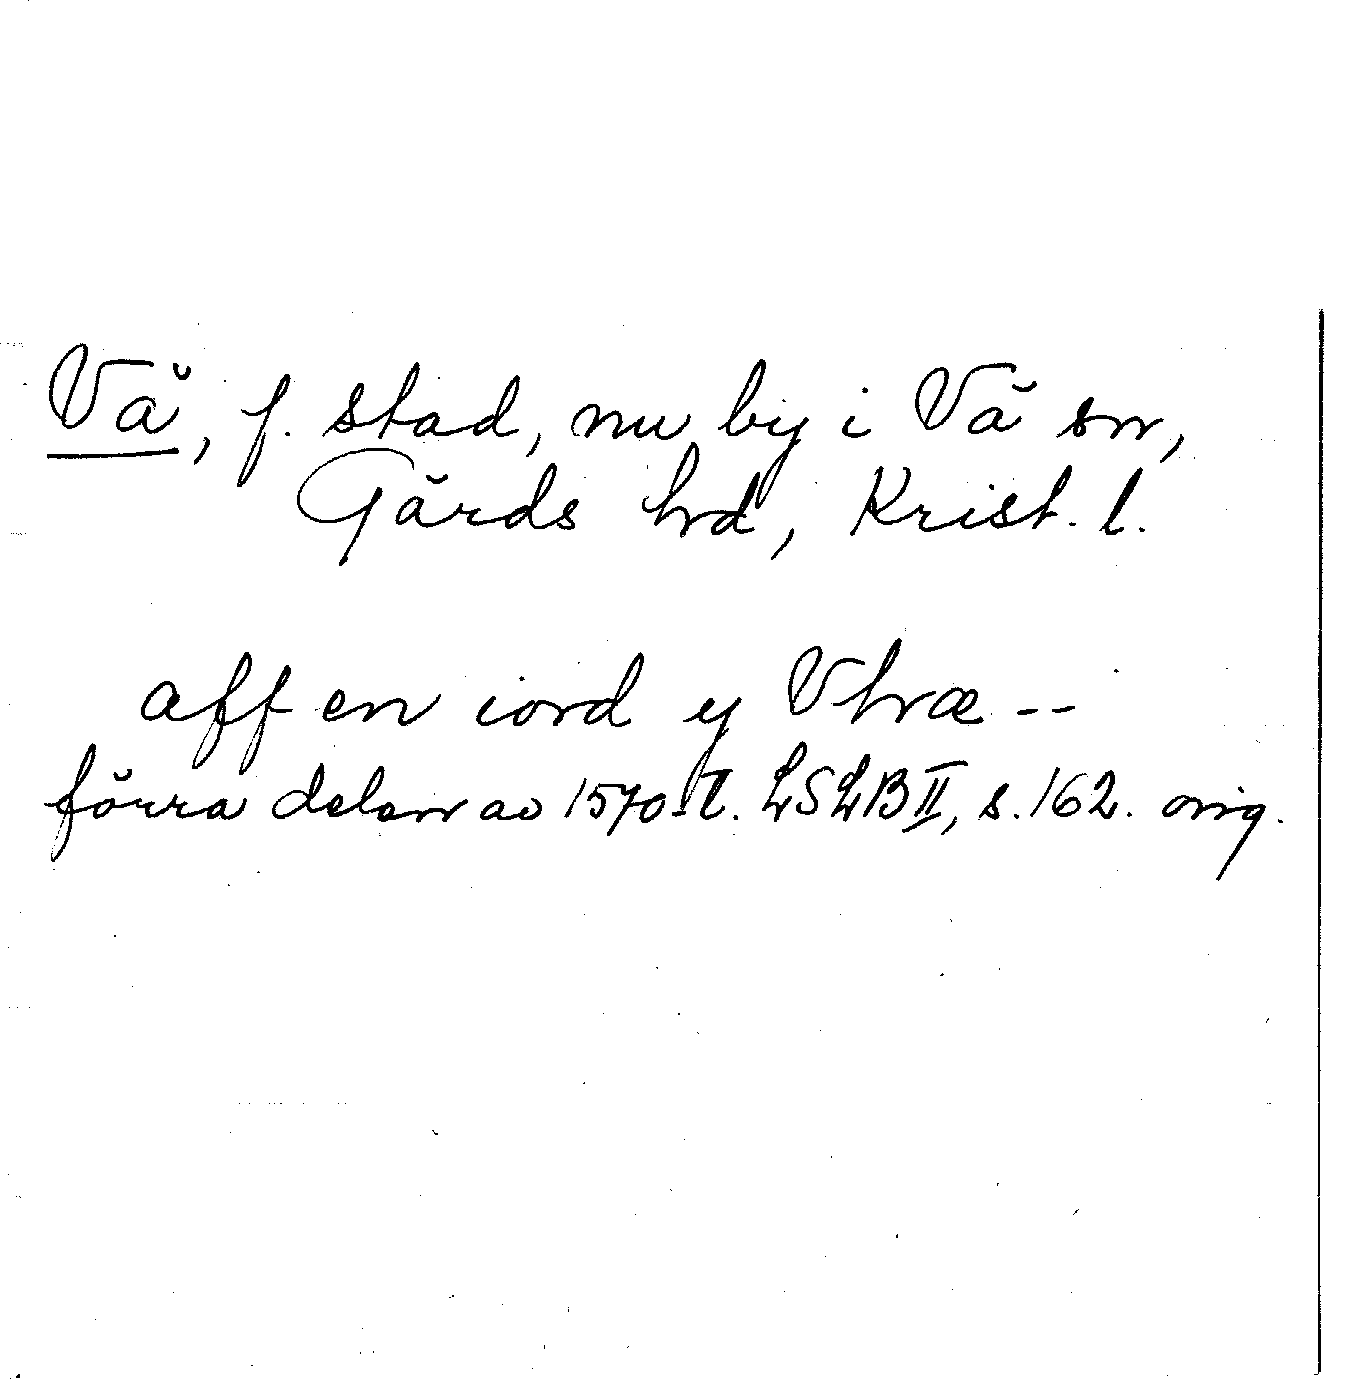 Vä, f. stad, nu by i Vä sn,
Gärds hd, Krist. l.
aff en iord y Vhræ --
förra delen av 1570-t. LSLB II, s. 162. orig.